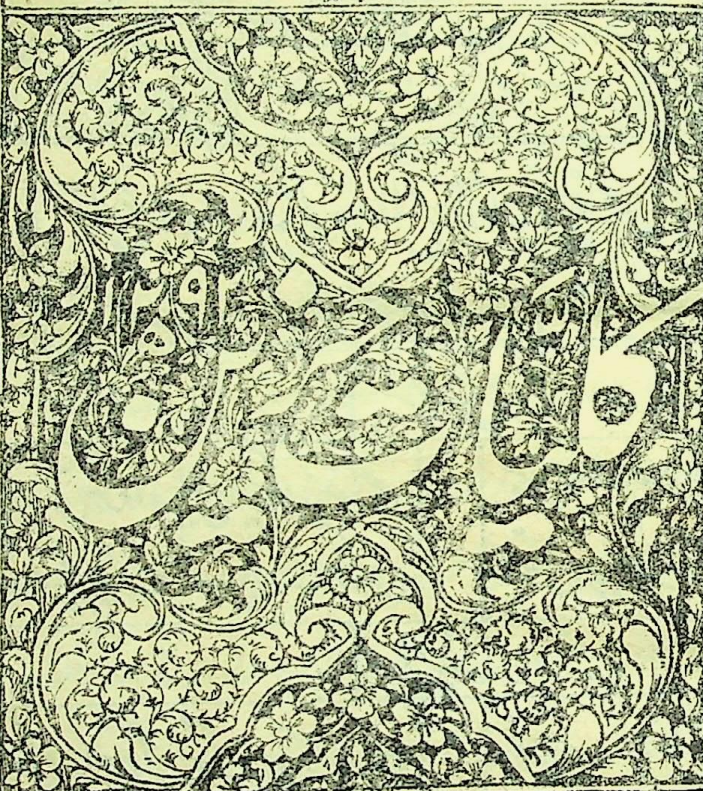 کلیّات حزین ۱۲۹۲ ھ